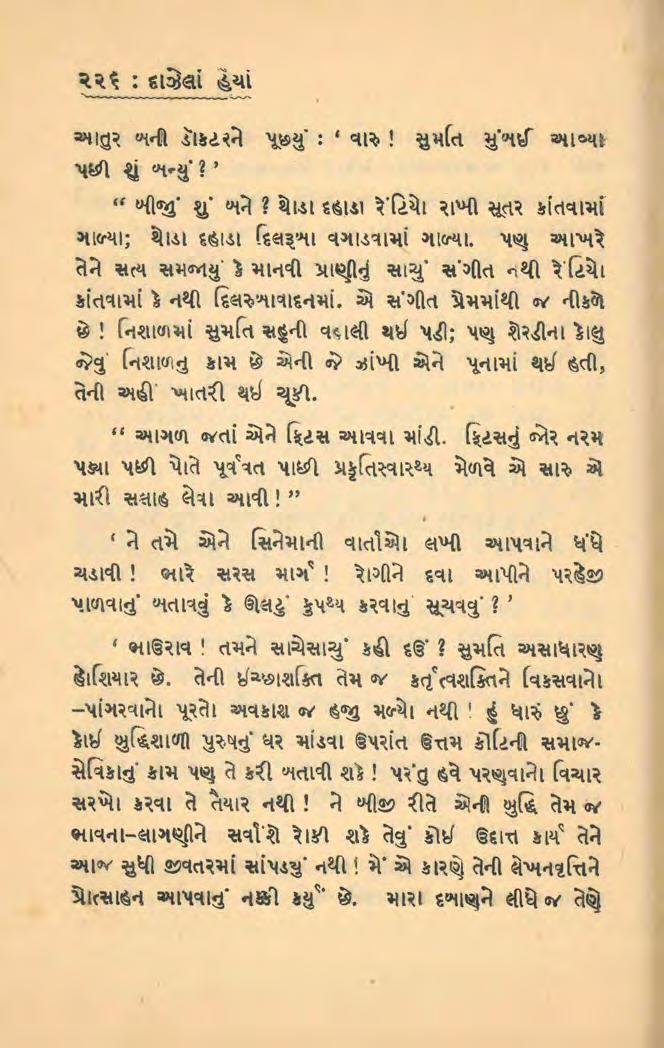 ૨૨૬ : દાઝેલાં હૈયાં
આતુર બની ડૉકટરને પૂછ્યું : ‘ વારુ ! સુમતિ મુંબઈ આવ્યા
પછી શું બન્યું ? ’
“ બીજું શું બને ? થોડા દહાડા રેંટિયો રાખી સૂતર કાંતવામાં
ગાળ્યા; થોડા દહાડા દિલરૂબા વગાડવામાં ગાળ્યા. પણ આખરે
તેને સત્ય સમજાયું કે માનવી પ્રાણીનું સાચું સંગીત નથી રેંટિયો
કાંતવામાં કે નથી દિલરુબાવાદનમાં. એ સંગીત પ્રેમમાંથી જ નીકળે
છે ! નિશાળમાં સુમતિ સહુની વહાલી થઈ પડી; પણ શેરડીના કોલુ
જેવું નિશાળનુ કામ છે એની જે ઝાંખી એને પૂનામાં થઈ હતી,
તેની અહીં ખાતરી થઈ ચૂકી.
“ આગળ જતાં એને ફિટસ આવવા માંડી. ફિટસનું જોર નરમ
પડ્યા પછી પોતે પૂર્વવત પાછી પ્રકૃતિસ્વાસ્થ્ય મેળવે એ સારુ એ
મારી સલાહ લેવા આવી ! ”
‘ ને તમે એને સિનેમાની વાર્તાઓ લખી આપવાને ધંધે
ચડાવી ! ભારે સરસ માર્ગ ! રોગીને દવા આપીને પરહેજી
પાળવાનું બતાવવું કે ઊલટું કુપથ્ય કરવાનું સૂચવવું ? ’
‘ ભાઉરાવ ! તમને સાચેસાચું કહી દઉં ? સુમતિ અસાધારણ
હોશિયાર છે. તેની ઈચ્છાશક્તિ તેમ જ કર્તૃત્વશક્તિને વિકસવાનો
–પાંગરવાનો પૂરતો અવકાશ જ હજી મળ્યો નથી ! હું ધારું છું કે
કોઈ બુદ્ધિશાળી પુરુષનું ઘર માંડવા ઉપરાંત ઉત્તમ કોટિની સમાજ-
સેવિકાનું કામ પણ તે કરી બતાવી શકે ! પરંતુ હવે પરણવાનો વિચાર
સરખો કરવા તે તૈયાર નથી ! ને બીજી રીતે એની બુદ્ધિ તેમ જ
ભાવના–લાગણીને સર્વાંશે રોકી શકે તેવું કોઈ ઉદાત્ત કાર્ય તેને
આજ સુધી જીવતરમાં સાંપડયું નથી ! મેં એ કારણે તેની લેખનવૃત્તિને
પ્રોત્સાહન આપવાનું નક્કી કર્યું છે. મારા દબાણને લીધે જ તેણે